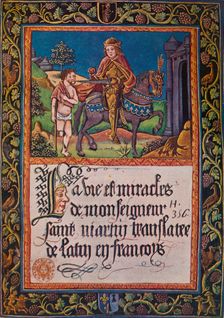 La vie et miracles
de monseigneur
saint martin translatee
de latin en francoys
H·
356